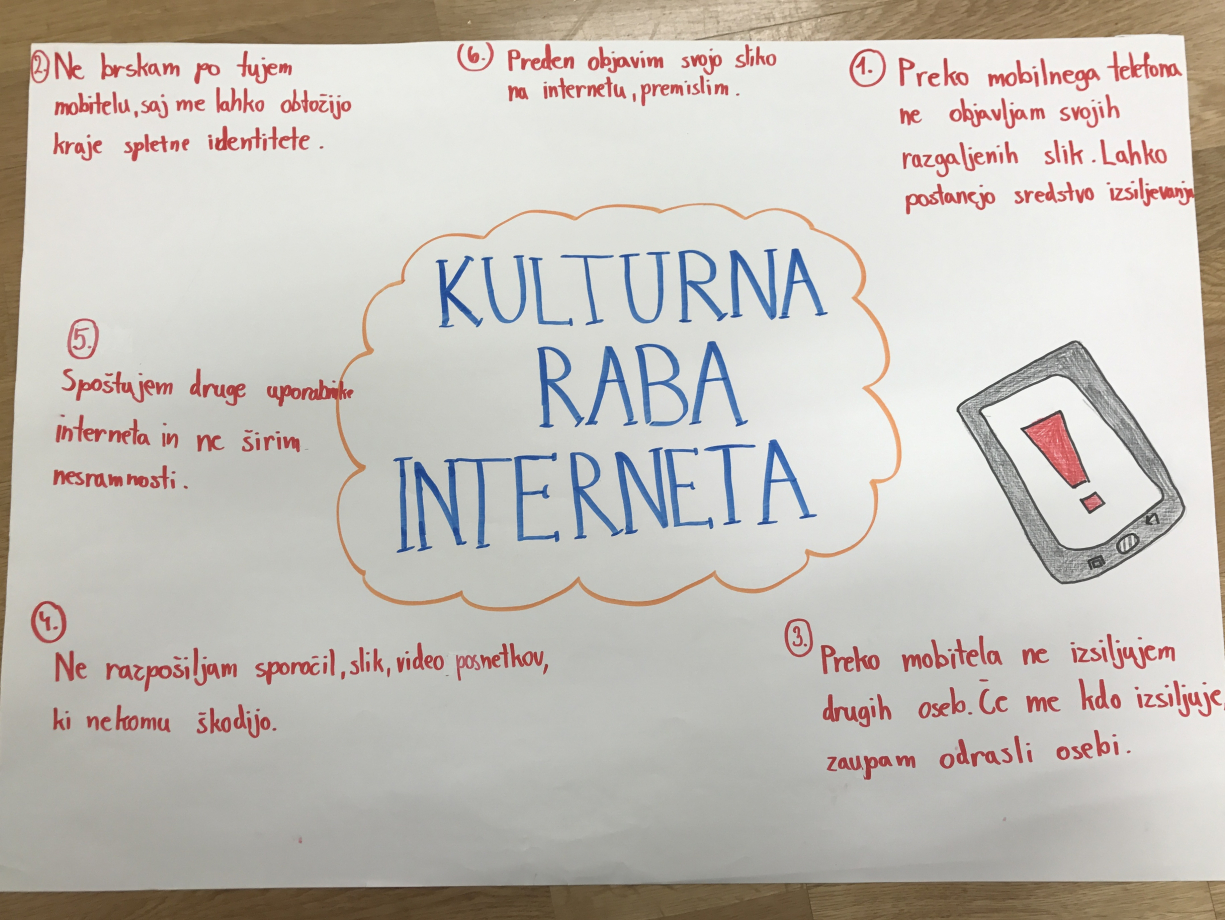 2. Ne brskam po tujem
mobitelu, saj me lahko obtožijo
kraje spletne identitete.
6. Preden objavim svojo sliko
na internetu, premislim.
1. Preko mobilnega telefona
ne objavljam svojih
razgaljenih slik. Lahko
postanejo sredstvo izsiljevanja
KULTURNA
RABA
INTERNETA
5.
Spoštujem druge uporabnike
interneta in ne širim
nesramnosti.
!
4.
Ne razpošiljam sporočil, slik, video posnetkov,
ki nekomu škodijo.
3. Preko mobitela ne izsiljujem
drugih oseb. Če me kdo izsiljuje,
zaupam odrasli osebi.